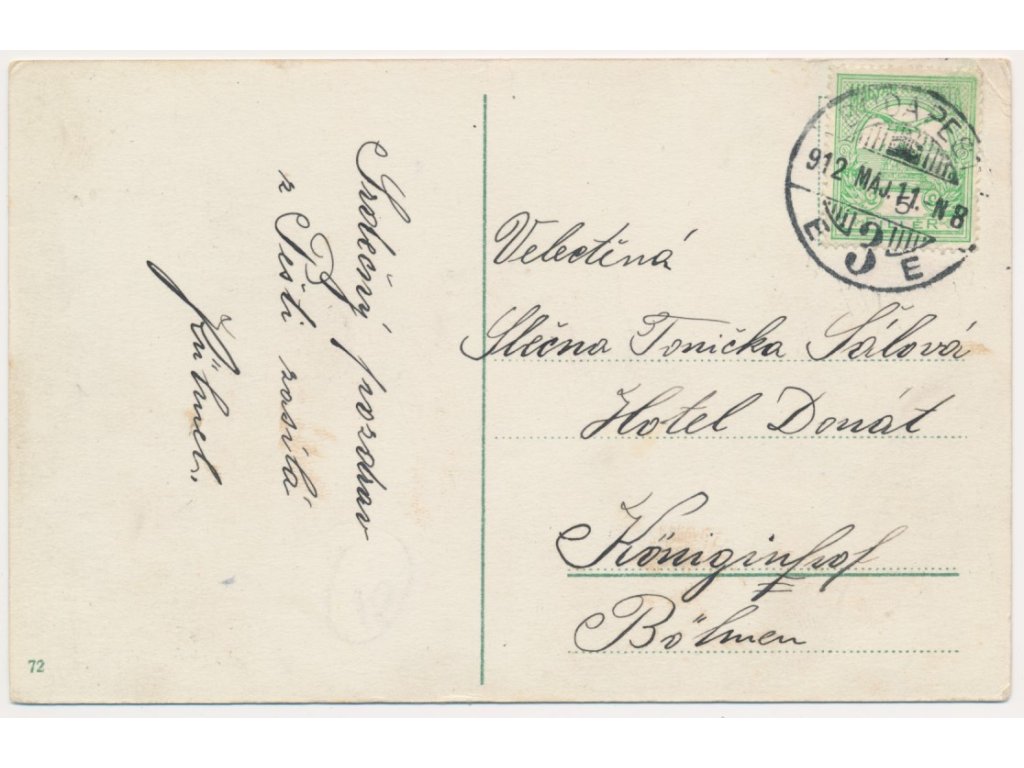 Srdečný pozdrav
z Pešti zasílá
BUDAPEST
912 MÁJ. 11. N 8
5
E 3 E
Velectěná
Slečna Tonička Sálová
Hotel Donát
Königinhof
Böhmen
72